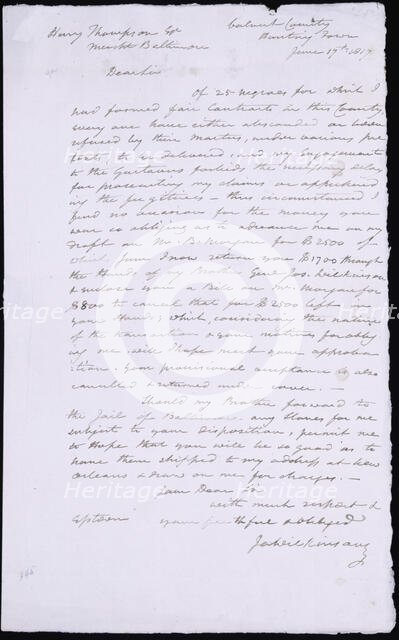 Harry Thompson Esqr
Mercht Baltimore
Calvert County
Hunting Town
June 17th 1817
Dear Sir
Of 25 negroes for which I
had formed fair Contracts in this County
every one have either absconded or been
refused by their Masters, under various pre
texts, to be delivered, and my Engagements
to the forbids the necessary delay
for prosecuting my claims or apprehend
ing the fugitives — thus circumstanced I
find no occasion for the money you
were so obliging as to advance me on my
draft on Mr B. Morgan for $2500 of
which sum I now return you $1700 through
the Hands of my Brother Genl Jos. Wilkinson
& enclose you a Bill on Mr Morgan for
$800 to cancel that for $2500 left in
your Hands; which, considering the nature
of the transaction & your motives for oblig
ing me will I hope meet your approba
tion. Your provisional acceptance is also
cancelled & returned under cover. —
Should my Brother forward to
the Jail of Baltimore any Slaves for me
subject to your disposition, permit me
to Hope that you will be so good as to
have them shipped to my address at New
Orleans & draw on me for charges. —
I am Dear Sir
with much respect &
esteem your faithful & obliged
Ja Wilkinson
Heritage
Heritage
Heritage
Images